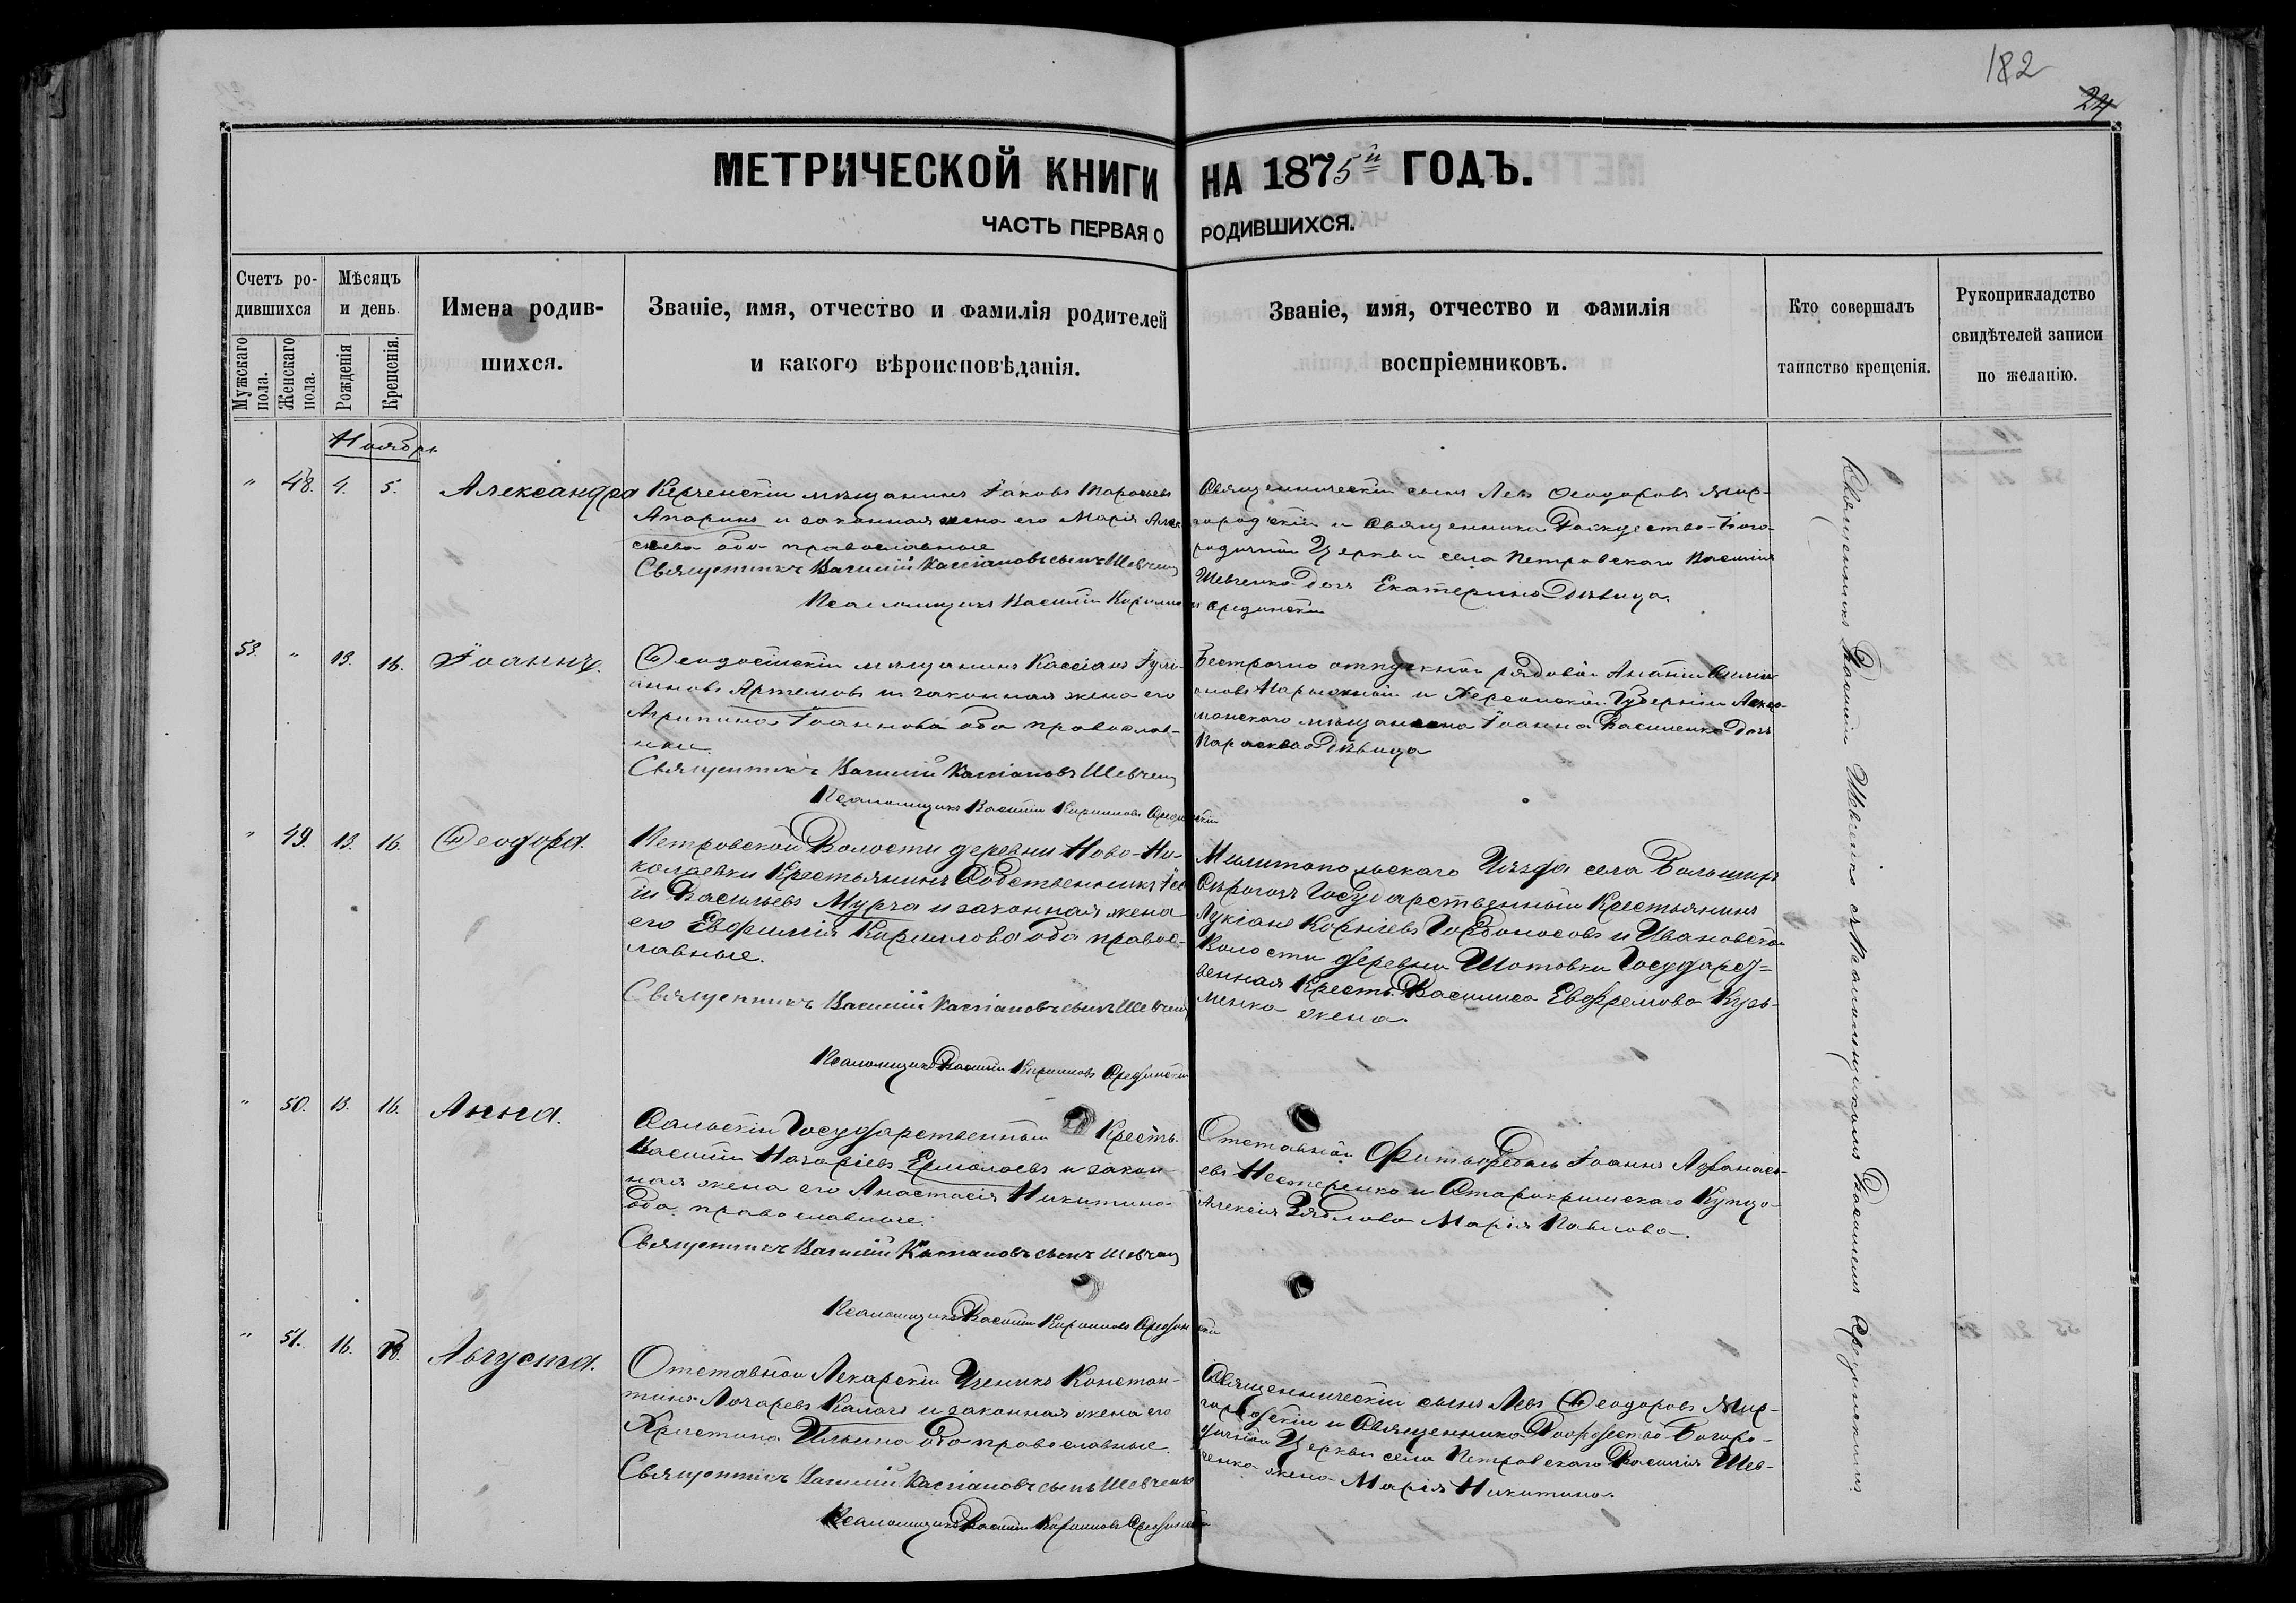 182
24
МЕТРИЧЕСКОЙ КНИГИ НА 1875й ГОДЪ.
ЧАСТЬ ПЕРВАЯ О РОДИВШИХСЯ.
Счетъ ро-
дившихся
Мужскаго пола.
Женскаго пола.
Мѣсяцъ
и день.
Рожденія
Крещенія.
Имена родив-
шихся.
Званіе, имя, отчество и фамилія родителей
и какого вѣроисповѣданія.
Званіе, имя, отчество и фамилія
воспріемниковъ.
Кто совершалъ
таинство крещенія.
Рукоприкладство
свидѣтелей записи
по желанію.
Ноябрь
" 48. 4. 5. Александра
Керченскій мѣщанинъ Іаковъ Тарасьевъ
Апаринъ и законная жена его Марія Алек-
сѣева оба православные
Священникъ Василій Кассіановъ сынъ Шевченко
Псаломщикъ Василій Кирилловъ Срединскій
Священническій сынъ Левъ Ѳеодоровъ Мир-
городскій и Священника Рождество-Бого-
родичной Церкви села Петровскаго Василія
Шевченко дочь Екатерина дѣвица.
53. " 13. 16. Іоаннъ.
Ѳеодосійскій мѣщанинъ Кассіанъ Іулі-
анновъ Артемовъ и законная жена его
Агрипина Іоаннова оба православ-
ные
Священникъ Василій Кассіановъ Шевченко
Псаломщикъ Василій Кирилловъ Срединскій
Безсрочно отпускной рядовой Ананій
и Херсонской Губерніи
мѣщанина Іоанна Василенко дочь
Параскева дѣвица
" 49. 13. 16. Ѳеодора.
Петровской Волости деревни Ново-Ни-
колаевки Крестьянинъ Собственникъ
Васильевъ Мурча и законная жена
его Евфимія Кириллова оба правос-
лавные.
Священникъ Василій Кассіановъ сынъ Шевченко
Псаломщикъ Василій Кирилловъ Срединскій
Мелитопольскаго Уѣзда села Большихъ
Сѣрогозъ Государственный Крестьянинъ
Лукіанъ Корніевъ Горбоносовъ и Ивановской
Волости деревни Шотовки Государст=
венная Кресть. Василиса Евфремова Кузь-
менко жена.
" 50. 13. 16. Анна.
Сальскій Государственный Кресть.
Василій Назаріевъ Ермолаевъ и закон-
ная жена его Анастасія Никитина
оба православные.
Священникъ Василій Кассіановъ сынъ Шевченко
Псаломщикъ Василій Кирилловъ Срединскій
Отставной Фельдфебель Іоаннъ Афанась-
евъ Нестеренко и Старокрымскаго Купца
Алексія Зяблова Марія Павлова.
" 51. 16. Августа.
Отставной Лекарскій Ученикъ Констан-
тинъ Лазаревъ Калачъ и законная жена его
Христина Ильина оба православные.
Священникъ Василій Кассіановъ сынъ Шевченко
Псаломщикъ Василій Кирилловъ Срединскій
Священническій сынъ Левъ Ѳеодоровъ Мир-
городскій и Священника Рождество-Богоро-
дичной Церкви села Петровскаго Василія Шев-
ченко жена Марія Никитина.
Священникъ Василій Шевченко съ Псаломщикомъ Василіемъ Срединскимъ